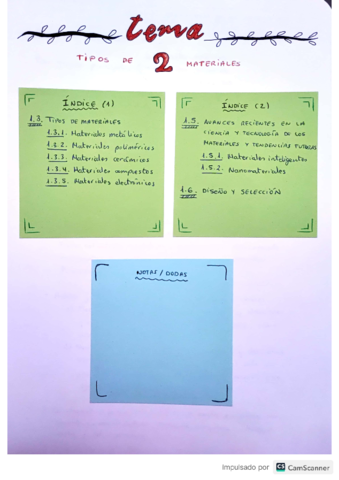 tema
TIPOS DE 2 MATERIALES
ÍNDICE (1)
1.3. TIPOS DE MATERIALES
1.3.1. Materiales metálicos
1.3.2. Materiales poliméricos
1.3.3. Materiales cerámicos
1.3.4. Materiales compuestos
1.3.5. Materiales electrónicos
ÍNDICE (2)
1.5. AVANCES RECIENTES EN LA
CIENCIA Y TECNOLOGÍA DE LOS
MATERIALES Y TENDENCIAS FUTURAS
1.5.1. Materiales inteligentes
1.5.2. Nanomateriales
1.6. DISEÑO Y SELECCIÓN
NOTAS / DUDAS
Impulsado por CS CamScanner